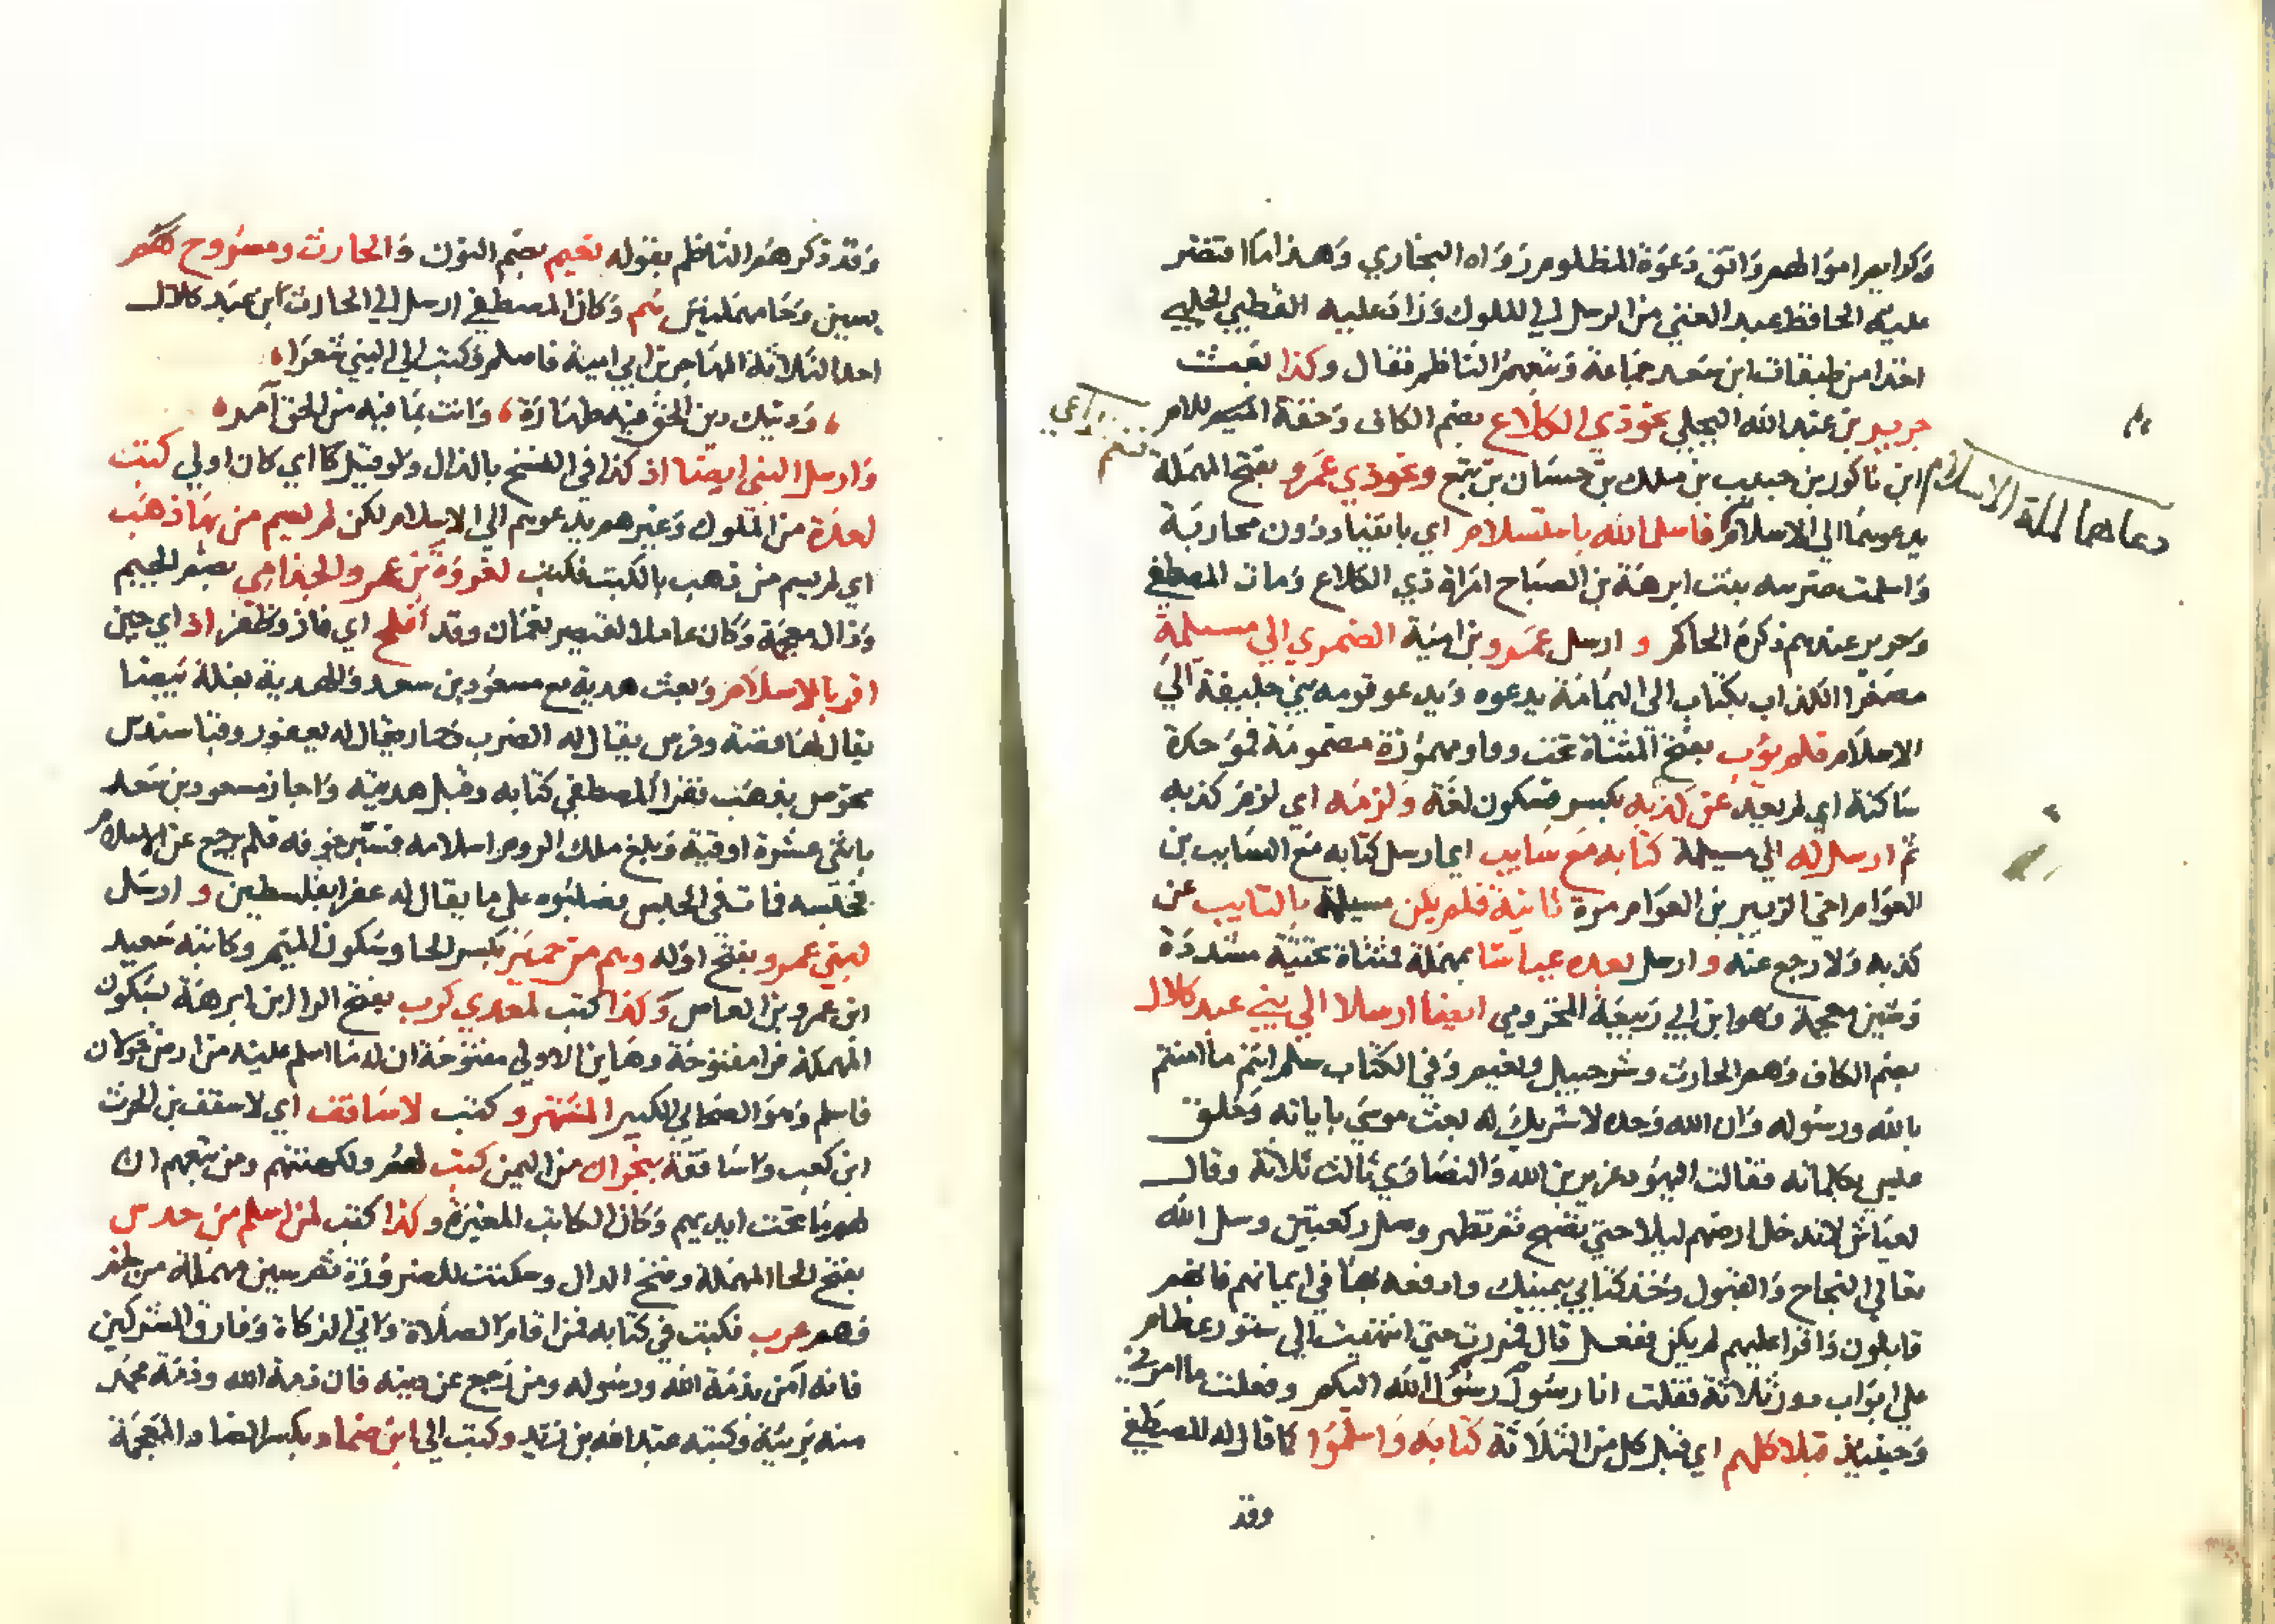 وكرايم اموالهم واتق دعوة المظلوم رواه البخاري وهذا ما اقتصر
عليه الحافظ عبد الغني من الرسل الي الملوك وزاد عليه القطبي الحلبي
اخذا من طبقات ابن سعد جماعة وتبعهم الناظم فقال وكذا بعث
جرير بن عبد الله البجلي نحو ذي الكلاع بضم الكاف وخفة اللام
ابن ناكور بن حبيب بن ملك بن حسان بن تبع ونحو ذي عمرو بفتح المهملة
دعاهما لملة الاسلام
يدعوهما الي الاسلام فاسلما لله باستسلام اي بانقياد دون محاربة
واسلمت ضريبه بنت ابرهة بن الصباح امراة ذي الكلاع ومات المصطفي
وجرير عندهم ذكره الحاكم و ارسل عمرو بن امية الضمري الي مسيلمة
مصغرا الكذاب بكتاب الي اليمامة يدعوه ويدعو قومه بني حنيفة الي
الاسلام فلم يؤب بفتح المثناة تحت وواو مهموزة مضمومة فموحدة
ساكنة اي لم يعد عن كذبه بكسر فسكون لغة ولزمه اي لزم كذبه
ثم ارسل له الي مسيلمة كتابه مع سايب اي ارسل كتابه مع السايب بن
العوام اخي الزبير بن العوام مرة ثانية فلم يكن مسيلمة بالتايب عن
كذبه ولا رجع عنه و ارسل بعده عياشا بمهملة فمثناة تحتية مشددة
وشين معجمة وهو ابن ابي ربيعة المخزومي ايضا ارسلا الي بني عبد كلال
بضم الكاف وهم الحارث وشرحبيل ونعيم وفي الكتاب سلم انتم ما امنتم
بالله ورسوله وان الله وحده لا شريك له بعث موسي باياته وخلق
عيسي بكلماته فقالت اليهود عزير بن الله والنصاري ثالث ثلاثة وقال
لعياش لا تدخل ارضهم ليلا حتي تصبح ثم تطهر وصل ركعتين وسل الله
تعالي النجاح والقبول وخذ كتابي بيمينك وادفعه بها في ايمانهم فانهم
قابلون واقرا عليهم لم يكن ففعل قال فخرجت حتي انتهيت الي ستور عظام
علي ابواب دور ثلاثة فقلت انا رسول رسول الله اليكم وفعلت ما امرني
وحينيذ قبلا كلهم اي قبل كل من الثلاثة كتابه واسلموا كما قال له المصطفي
وقد
وقد ذكرهم الناظم بقوله نعيم بضم النون والحارث ومسروح هم
بسين وحا مهملتين ثم وكان المصطفي ارسل الي الحارث ابن عبد كلال
احد الثلاثة المهاجر بن ابي امية فاسلم وكتب الي النبي شعرا
ودينك دين الحق فيه طهارة وانت بما فيه من الحق آمر
وارسل النبي ايضا اذ كذا في النسخ بالذال ولو قيل كما اي كان اولي كتبت
لعدة من الملوك وغيرهم يدعوهم الي الاسلام لكن لم يسم من بها ذهب
اي لم يسم من ذهب بالكتب فكتب لفروة بن عمرو الجذامي بضم الجيم
وذال معجمة وكان عاملا لقيصر بعمان وقد افلح اي فاز وظفر اذ اي حين
اقر بالاسلام وبعث هدية مع مسعود بن سعد والهدية بغلة بيضا
يقال لها فضة وفرس يقال له الضرب وحمار يقال له يعفور وقبا سندس
مخوص بذهب فقرا المصطفي كتابه وقبل هديته واجاز مسعود بن سعد
باثني عشرة اوقية وبلغ ملك الروم اسلامه فتبين خوفه فلم يرجع عن الاسلام
فحبسه فمات في الحبس فصلبوه علي ما يقال له عفرا بفلسطين و ارسل
لبني عمرو بفتح اوله وهم من حمير بكسر الحا وسكون الميم وكاتبه سعيد
ابن عمرو بن العاص وكذا كتب لمعدي كرب بفتح الرا ابن ابرهة بسكون
المهملة فرا مفتوحة وها بن الاولي مفتوحة ان له ما اسلم عليه من ارض خولان
فاسلم وهو الصحابي الكبير المشتهر و كتب لاساقف اي لاسقف بن الحرث
ابن كعب واساقفة بنجران من اليمن كتب لهم ولكهنتهم ومن تبعهم ان
لهم ما تحت ايديهم وكان الكاتب المغيرة وكذا كتب لمن اسلم من حدس
بفتح الحا المهملة وفتح الدال وسكنت للضرورة ثم سين مهملة من لخم
فهم عرب فكتب في كتابه فمن اقام الصلاة واتي الزكاة وفارق المشركين
فانه آمن بذمة الله ورسوله ومن رجع عن دينه فان ذمة الله وذمة محمد
منه بريئة وكتبه عبد الله بن زيد وكتب الي ابن ضماد بكسر الضاد المعجمة